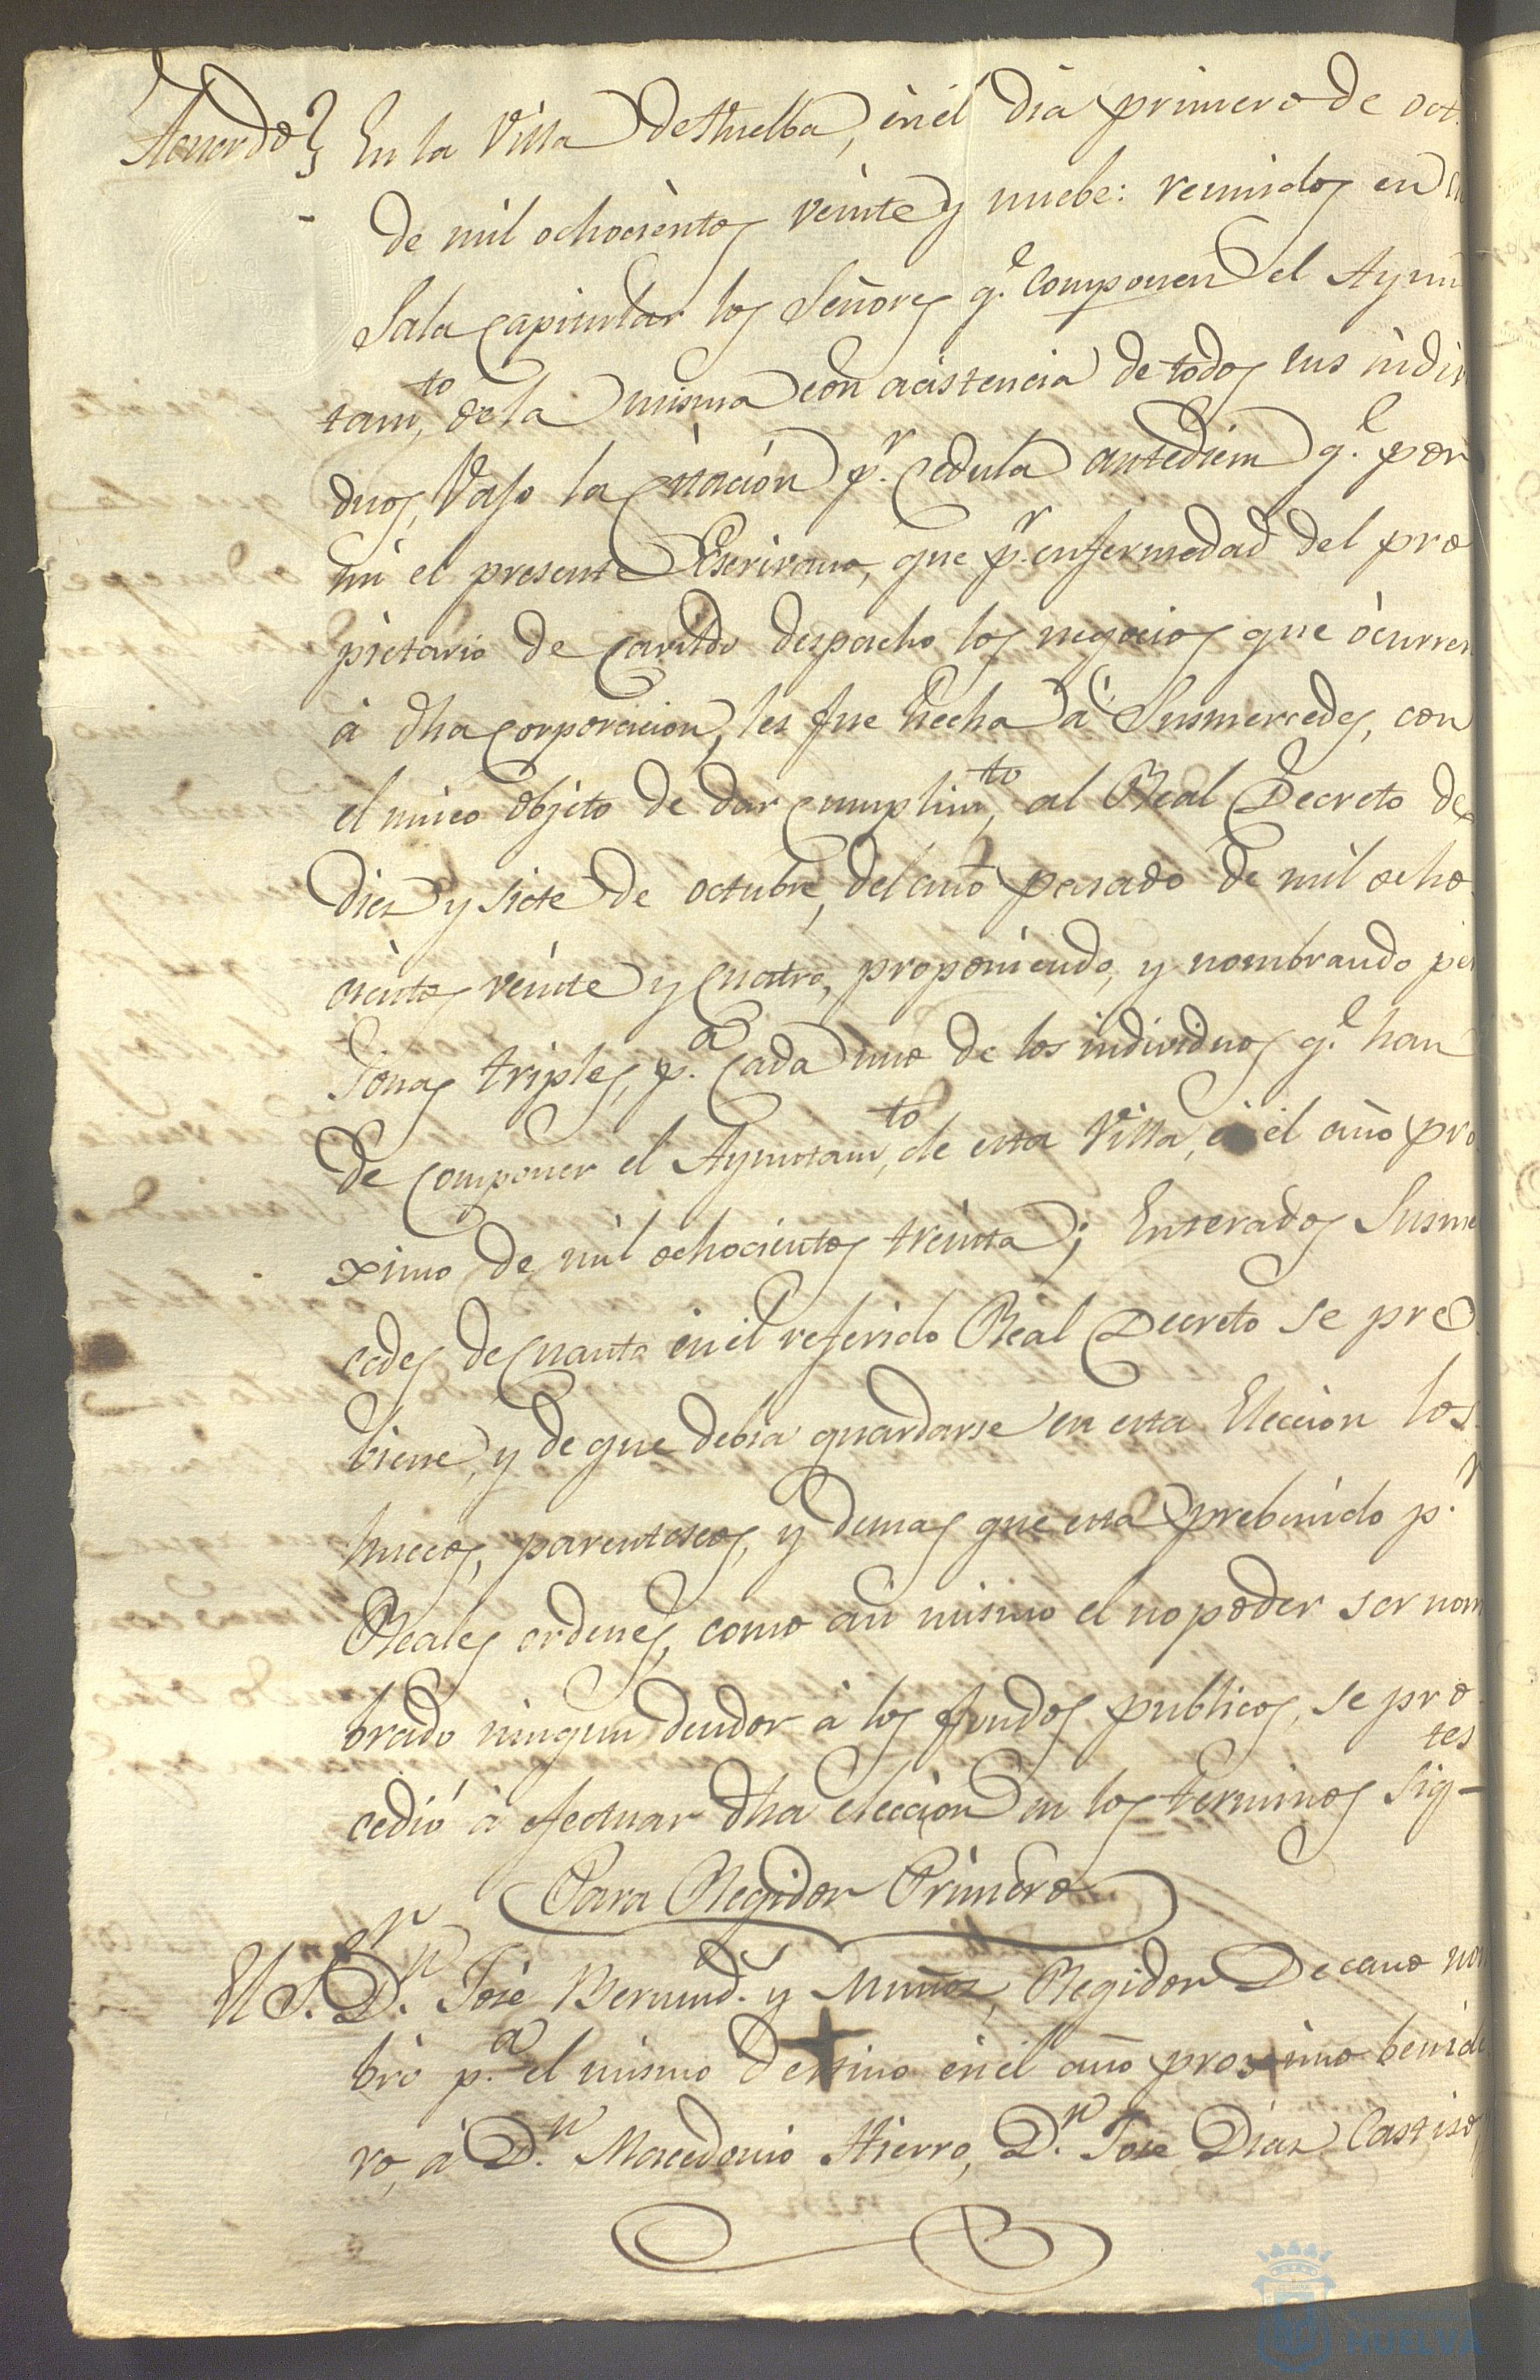 Acuerdo} En la Villa de Huelba, en el dia primero de oct.
de mil ochocientos veinte y nuebe: reunidos en su
Sala capitular los Señores q.e componen el Ayun
tam.to de la misma con acistencia de todos sus indivi
duos, vajo la citación p.r cedula antediem q.e por
mi el presente Escrivano, que p.r enfermedad del pro
pietario de Cavildo despacho los negocios que ocurren
à dha corporacion, les fue hecha à Susmercedes, con
el unico objeto de dar cumplim.to al Real Decreto de
diez y siete de octubre, del año pasado de mil ocho
cientos veinte y cuatro, proponiendo, y nombrando per
sonas triples, p.a cada uno de los individuos q.e han
de componer el Ayuntam.to de esta Villa, en el año pro
ximo de mil ochocientos treinta; Enterados Susmer
cedes de cuanto en el referido Real Decreto se pre
biene, y de que debia guardarse en esta Eleccion los
huecos, parentescos, y demas que esta prebenido p.r
Reales ordenes, como asi mismo el no poder ser nom
brado ningun deudor à los fondos publicos, se pro
cedió à efectuar dha elección en los terminos sig-tes
Para Regidor Primero
El S.r D.n José Bermud.s y Muñoz, Regidor Decano nom
bró p.a el mismo destino en el año proximo benide
ro, à D.n Macedonio Hierro, D.n Jose Diaz Castizo,
HUELVA